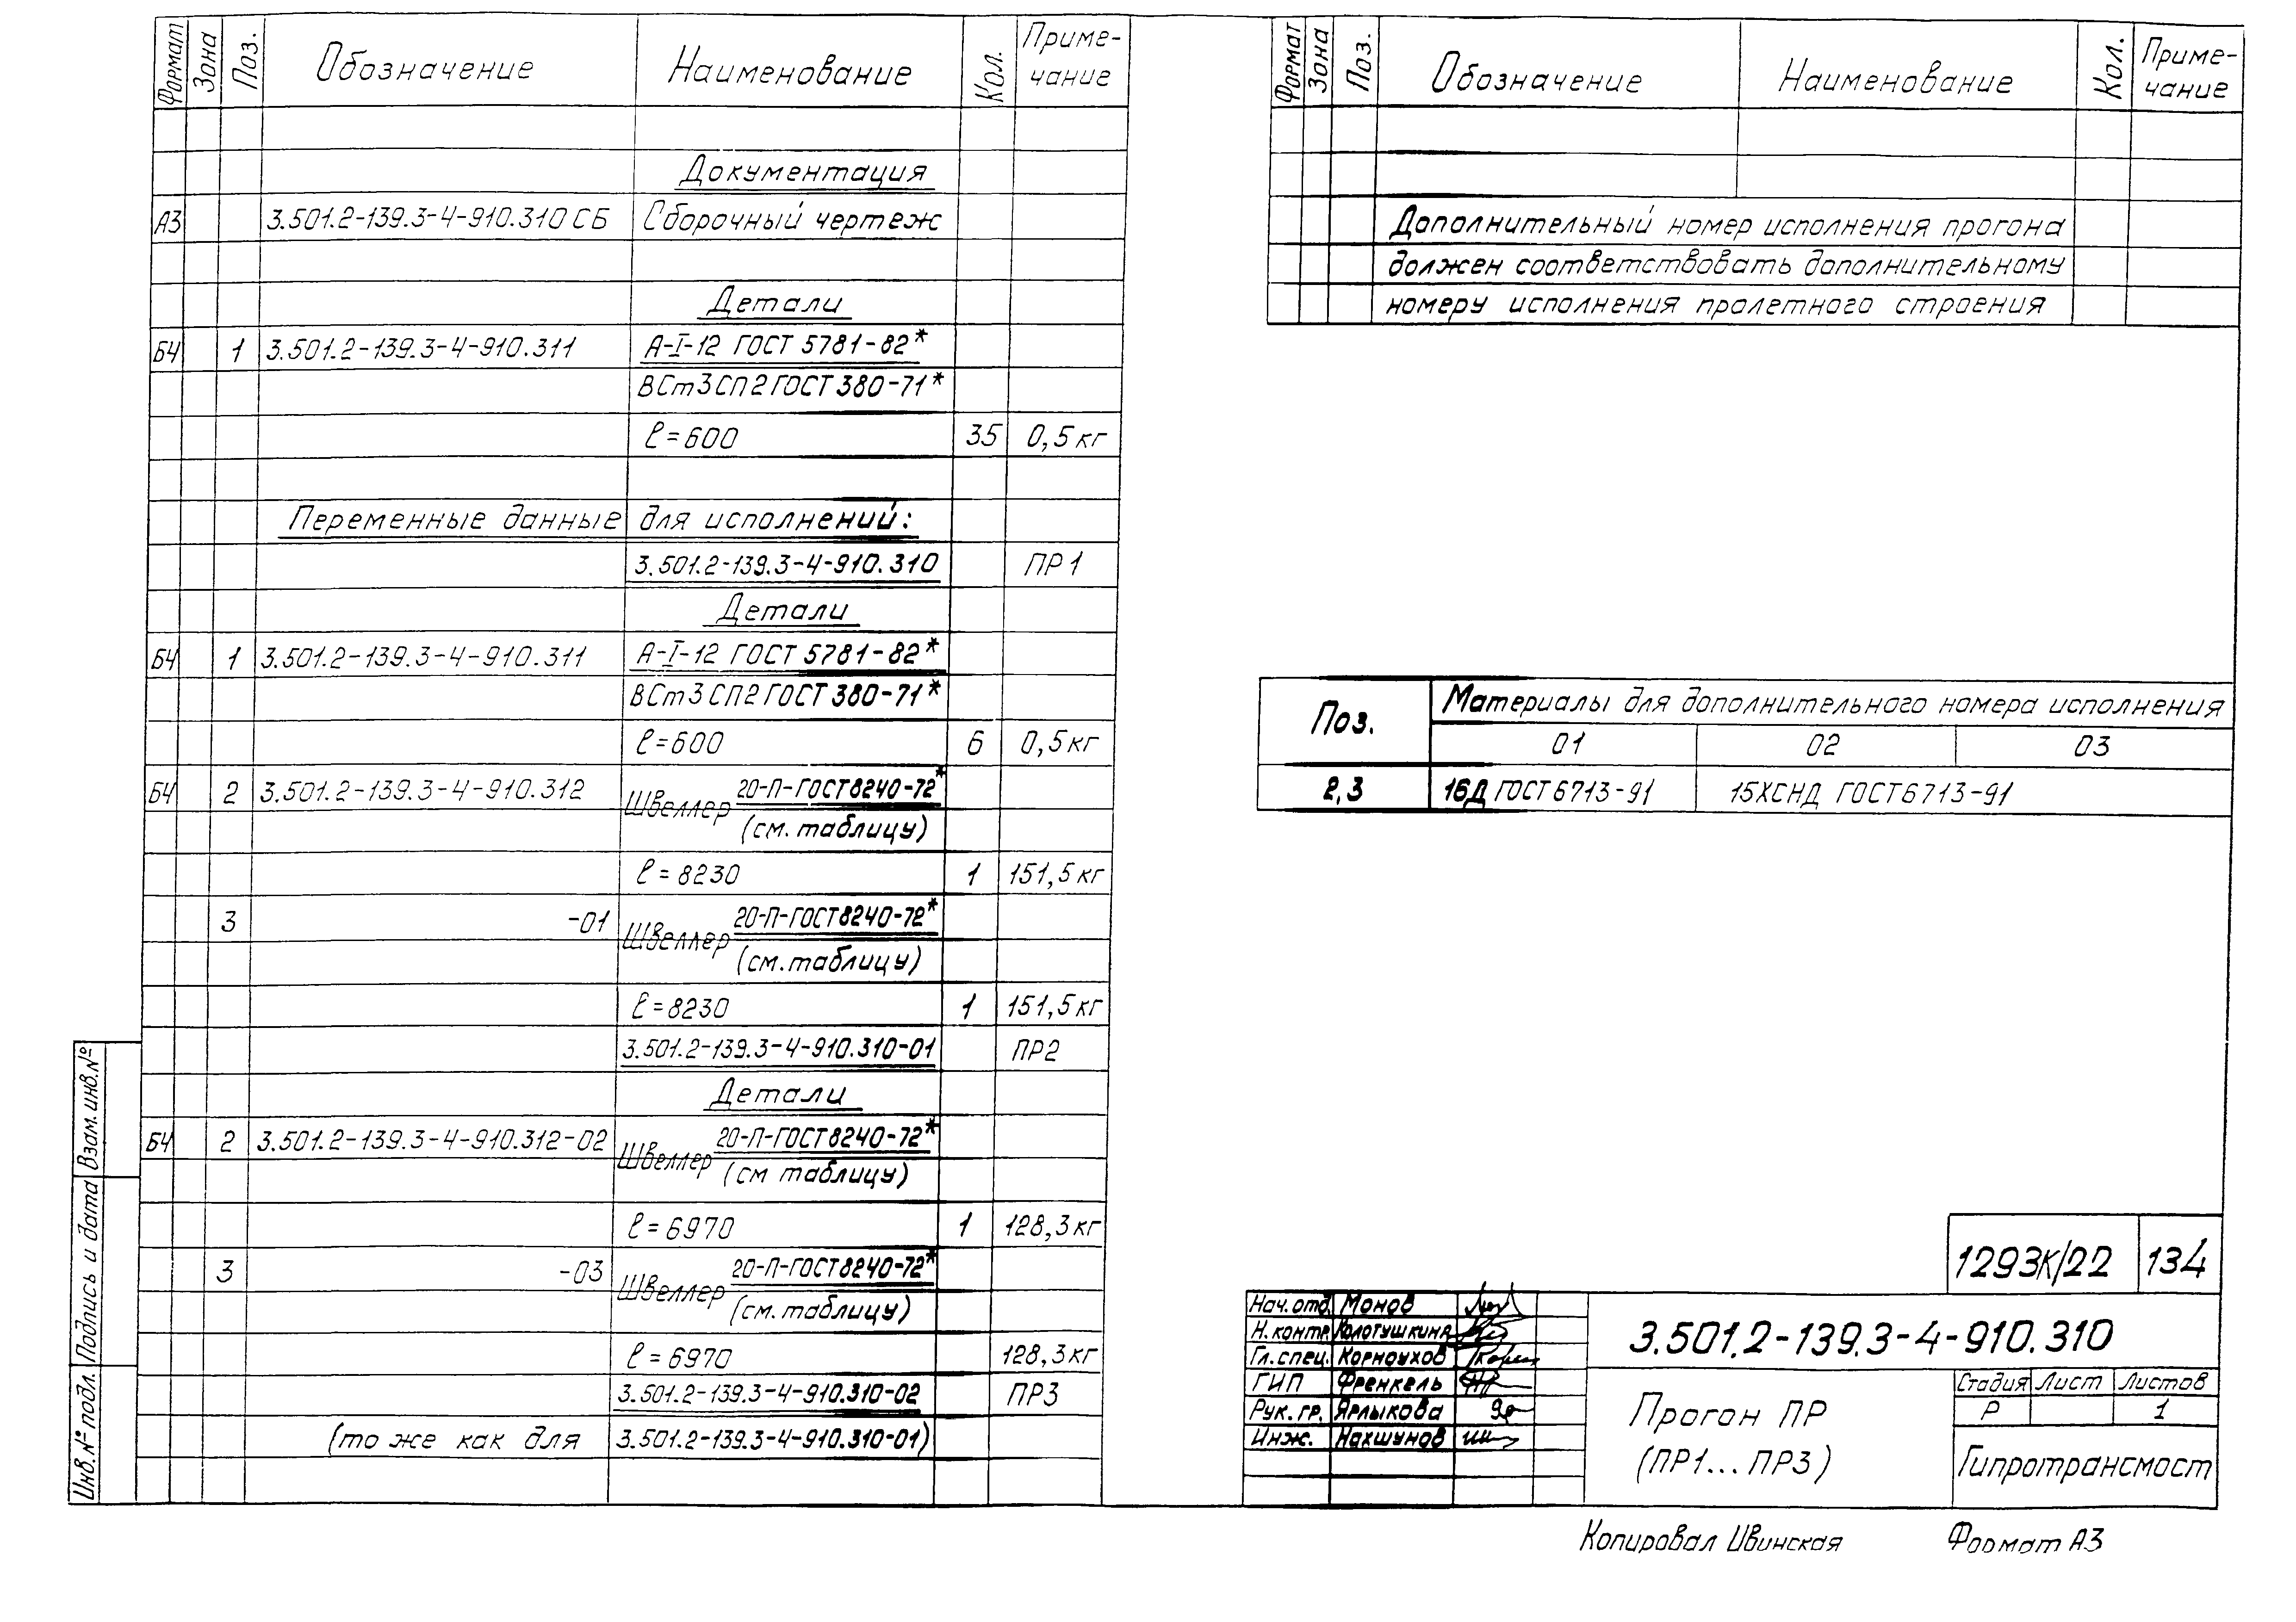 Формат Зона Поз. Обозначение Наименование Кол. Приме-
чание
Документация
А3 3.501.2-139.3-4-910.310 СБ Сборочный чертеж
Детали
БЧ 1 3.501.2-139.3-4-910.311 А-I-12 ГОСТ 5781-82*
ВСт3СП2 ГОСТ 380-71*
ℓ=600 35 0,5 кг
Переменные данные для исполнений:
3.501.2-139.3-4-910.310 ПР1
Детали
БЧ 1 3.501.2-139.3-4-910.311 А-I-12 ГОСТ 5781-82*
ВСт3СП2 ГОСТ 380-71*
ℓ=600 6 0,5 кг
БЧ 2 3.501.2-139.3-4-910.312 Швеллер 20-П-ГОСТ 8240-72*
(см. таблицу)
ℓ=8230 1 151,5 кг
3 -01 Швеллер 20-П-ГОСТ 8240-72*
(см. таблицу)
ℓ=8230 1 151,5 кг
3.501.2-139.3-4-910.310-01 ПР2
Детали
БЧ 2 3.501.2-139.3-4-910.312-02 Швеллер 20-П-ГОСТ 8240-72*
(см таблицу)
ℓ=6970 1 128,3 кг
3 -03 Швеллер 20-П-ГОСТ 8240-72*
(см. таблицу)
ℓ=6970 128,3 кг
3.501.2-139.3-4-910.310-02 ПР3
(то же как для 3.501.2-139.3-4-910.310-01)
Взам. инв. №
Подпись и дата
Инв. № подл.
Формат Зона Поз. Обозначение Наименование Кол. Приме-
чание
Дополнительный номер исполнения прогона
должен соответствовать дополнительному
номеру исполнения пролетного строения
Поз. Материалы для дополнительного номера исполнения
01 02 03
2,3 16Д ГОСТ 6713-91 15ХСНД ГОСТ 6713-91
1293К/22 134
Нач. отд. Монов
Н. контр. Колотушкина
Гл. спец. Корноухов
ГИП Френкель
Рук. гр. Ярлыкова
Инж. Нахшунов
3.501.2-139.3-4-910.310
Прогон ПР
(ПР1... ПР3)
Стадия Лист Листов
Р 1
Гипротрансмост
Копировал Ивинская Формат А3